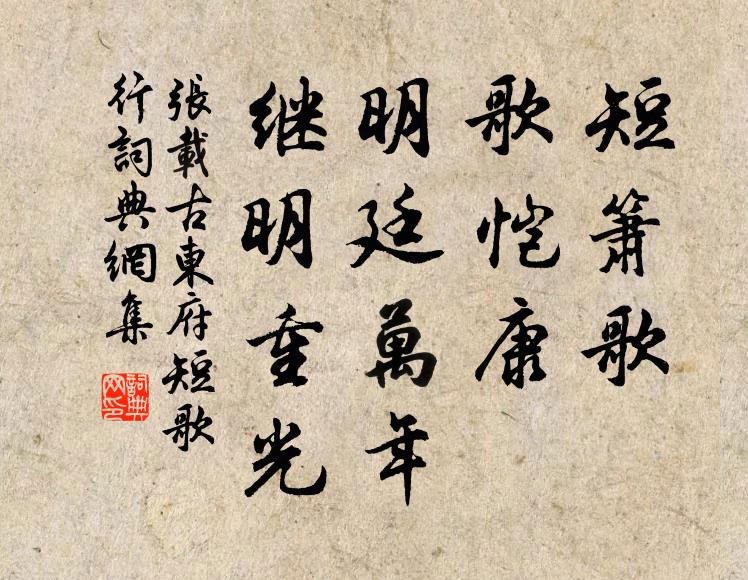 短簫歌
歌恺康
明廷萬年
继明重光
張載古東府短歌
行詞典網集
詞典
网印